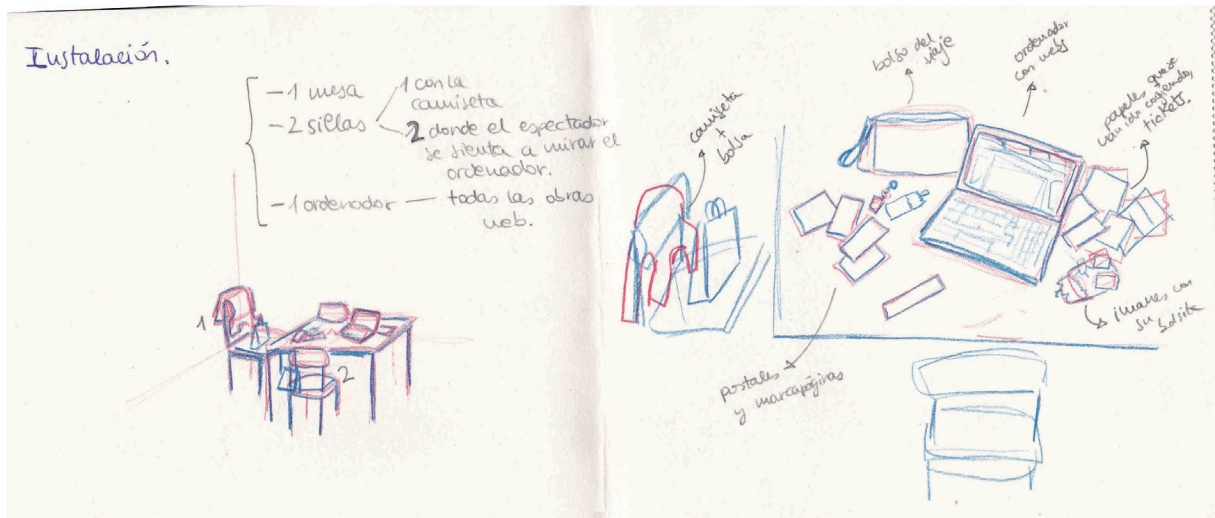 Instalación.
- 1 mesa
- 2 sillas
1 con la
camiseta
2 donde el espectador
se sienta a mirar el
ordenador.
- 1 ordenador — todas las obras
web.
1
2
camiseta
+
bolsa
bolso del
viaje
ordenador
con webs
papeles que se
van ido cogiendo,
tickets.
imanes con
su bolsita
postales
y marcapáginas